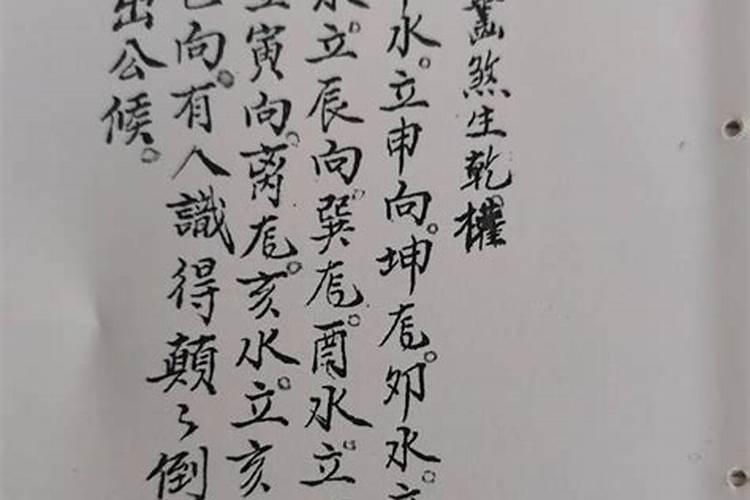 煞生乾權
水。立申向。坤龙。夘水。立
水。立辰向。巽龙。酉水。立
立寅向。离龙。亥水。立亥
向。有人識得顛々倒
出公候。